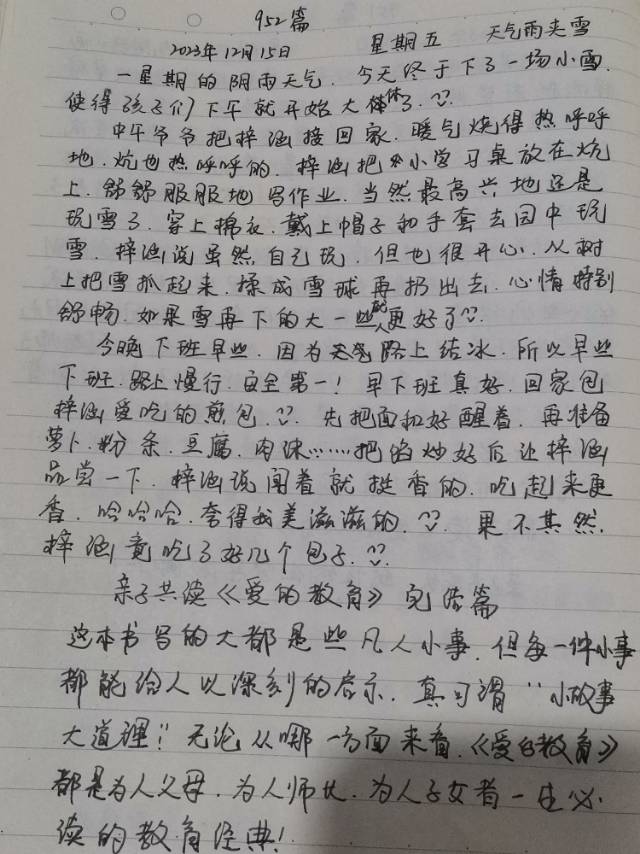 952篇
2023年12月15日 星期五 天气雨夹雪
一星期的阴雨天气.今天终于下了一场小雪.
使得孩子们下午就开始大休了.
中午爷爷把梓涵接回家.暖气烧得热呼呼
地.炕也热呼呼的.梓涵把小学习桌放在炕
上.舒舒服服地写作业.当然最高兴地还是
玩雪了.穿上棉衣.戴上帽子和手套去园中玩
雪.梓涵说虽然自己玩.但也很开心.从树
上把雪抓起来.揉成雪球再扔出去.心情特别
舒畅.如果雪再下的大一些就更好了.
今晚下班早些.因为天气路上结冰.所以早些
下班.路上慢行.安全第一!早下班真好.回家包
梓涵爱吃的煎包.先把面和好醒着.再准备
萝卜.粉条.豆腐.肉沫……把馅炒好后让梓涵
品尝一下.梓涵说闻着就挺香的.吃起来更
香.哈哈哈.夸得我美滋滋的.果不其然.
梓涵竟吃了好几个包子.
亲子共读《爱的教育》完结篇
这本书写的大都是些凡人小事.但每一件小事
都能给人以深刻的启示.真可谓“小故事
大道理”!无论从哪一方面来看.《爱的教育》
都是为人父母.为人师长.为人子女者一生必
读的教育经典!